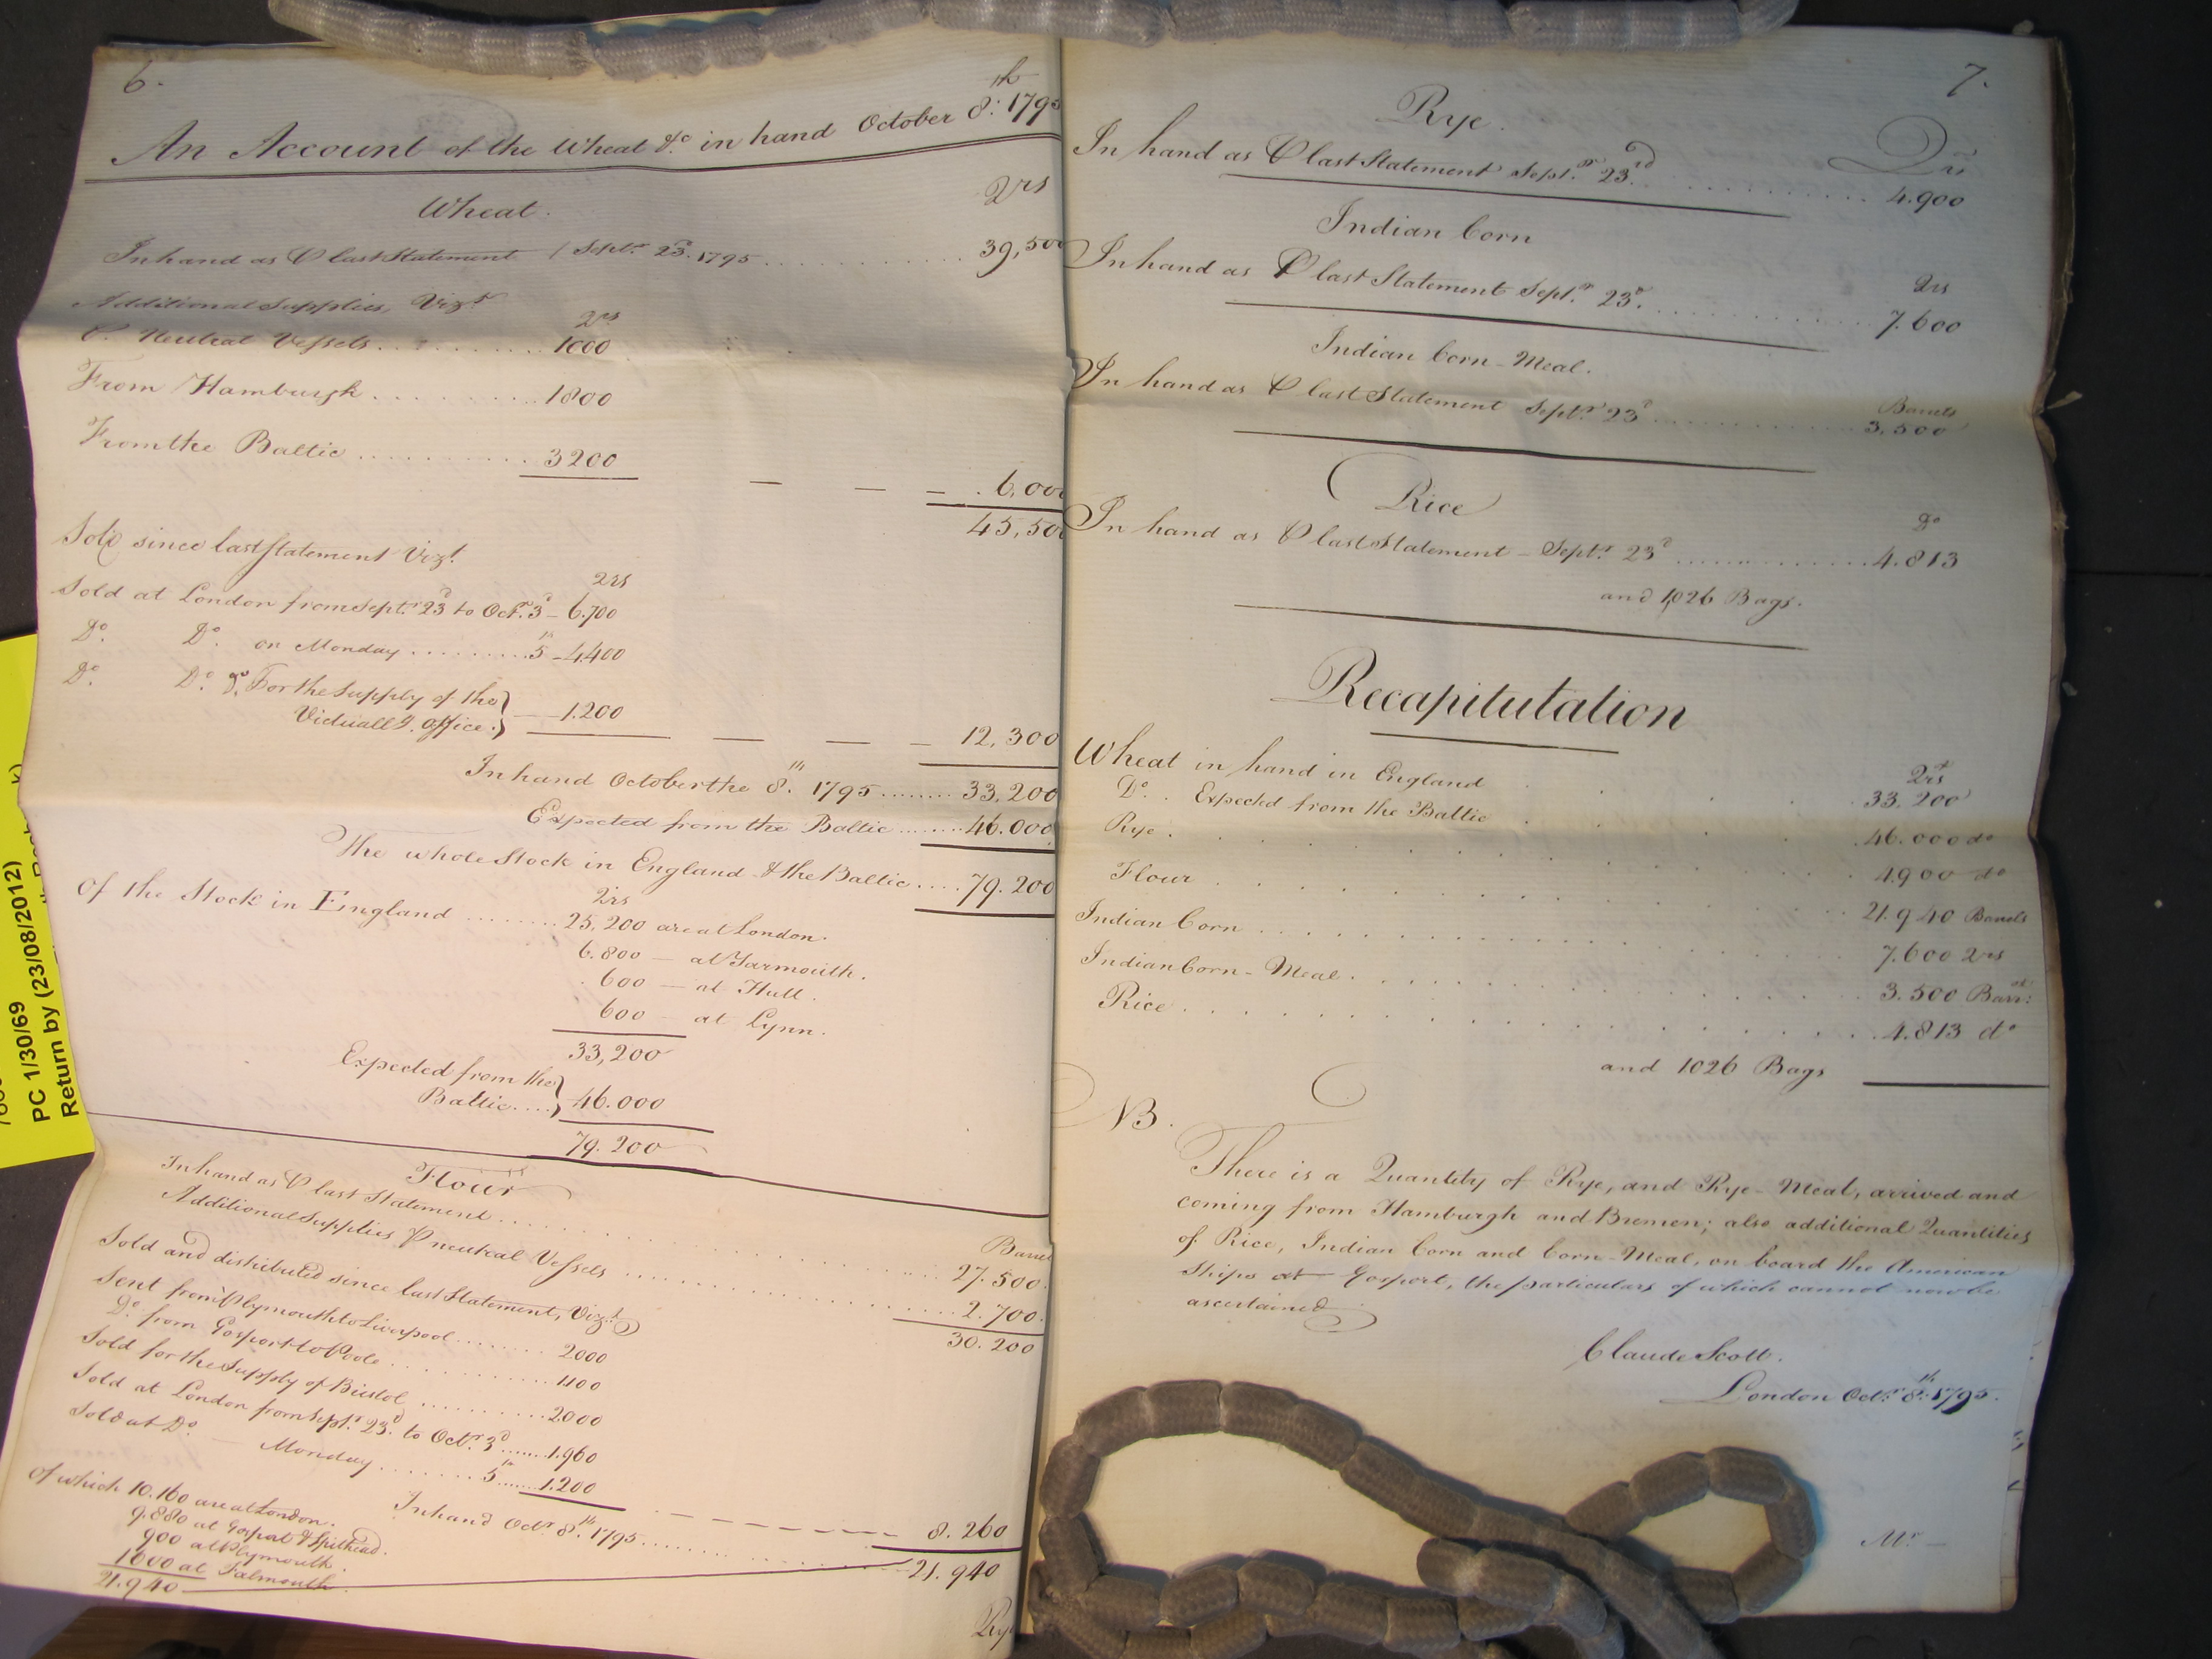 6.
An Account of the Wheat &c in hand October 8th 1795
Wheat. Qrs
In hand as P last Statement / Septr 23d 1795 .......... 39,500
Additional Supplies, Vizt
Qrs
P. Neutral Vessels .......... 1000
From Hamburgh .......... 1800
From the Baltic .......... 3200
— — — 6,000
45,500
Sold since last Statement Vizt
Qrs
Sold at London from Septr 23d to Octr 3d – 6.700
Do. Do. on Monday .......... 5th – 4,400
Do. Do. do. For the Supply of the
Victuallg. Office } – 1.200
— — — 12,300
In hand October the 8th 1795 ........ 33,200
Expected from the Baltic ........ 46.000
The whole Stock in England & the Baltic .... 79.200
Qrs
Of the Stock in England ........ 25,200 are at London.
6.800 — at Yarmouth.
600 — at Hull.
600 — at Lynn.
33,200
Expected from the
Baltic .... } 46.000
79.200
Flour
Barrels
In hand as P last Statement .......... 27.500
Additional Supplies P neutral Vessels .......... 2.700
30.200
Sold and distributed since last Statement, Vizt
Sent from Plymouth to Liverpool ........ 2000
Do from Gosport to Poole .......... 1100
Sold for the Supply of Bristol .......... 2000
Sold at London from Septr 23d to Octr 3d ....... 1.960
Sold at Do — Monday ........ 5th ...... 1.200
— — — 8.260
In hand Octr 8th 1795 .......... 21.940
Of which 10.160 are at London.
9.880 at Gosport & Spithead.
900 at Plymouth
1000 at Falmouth.
21.940
Rye
7.
Rye.
Qrs
In hand as P last Statement Septr 23rd .......... 4.900
Indian Corn
Qrs
In hand as P last Statement Septr 23d .......... 7.600
Indian Corn-Meal.
Barrels
In hand as P last Statement Septr 23d .......... 3.500
Rice
Do
In hand as P last Statement – Septr 23d .......... 4.813
and 1,026 Bags.
Recapitulation
Qrs
Wheat in hand in England . . . 33.200
Do. . Expected from the Baltic . . . 46.000 do
Rye . . . 4.900 do
Flour . . . 21.940 Barrels
Indian Corn . . . 7.600 Qrs
Indian Corn-Meal . . . 3.500 Barrs:
Rice . . . 4.813 do
and 1026 Bags
NB.
There is a Quantity of Rye, and Rye-Meal, arrived and
coming from Hamburgh and Bremen; also additional Quantities
of Rice, Indian Corn and Corn-Meal, on board the American
Ships at Gosport, the particulars of which cannot now be
ascertained
Claude Scott.
London Octr 8th 1795.
Mr –
PC 1/30/69
Return by (23/08/2012)